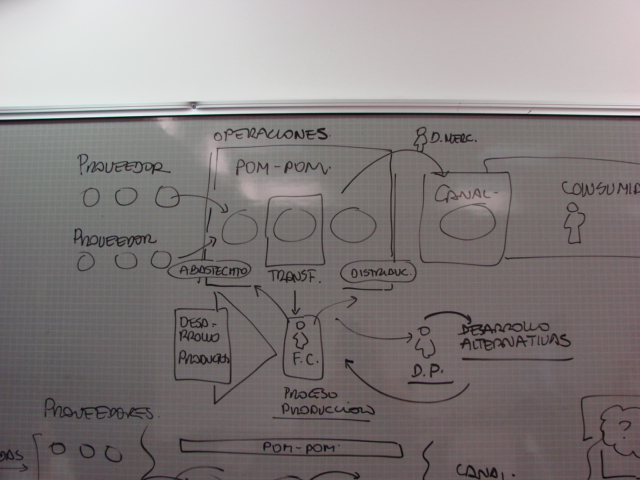 OPERACIONES
D. MERC.
PROVEEDOR
POM-POM.
CANAL
CONSUMID
PROVEEDOR
ABASTECMTO
TRANSF.
DISTRIBUC.
DESA-
RROLLO
PRODUCTOS
F.C.
DESARROLLO
ALTERNATIVAS
D.P.
PROCESO
PRODUCCION
PROVEEDORES.
POM-POM
DAS
CANAL
?